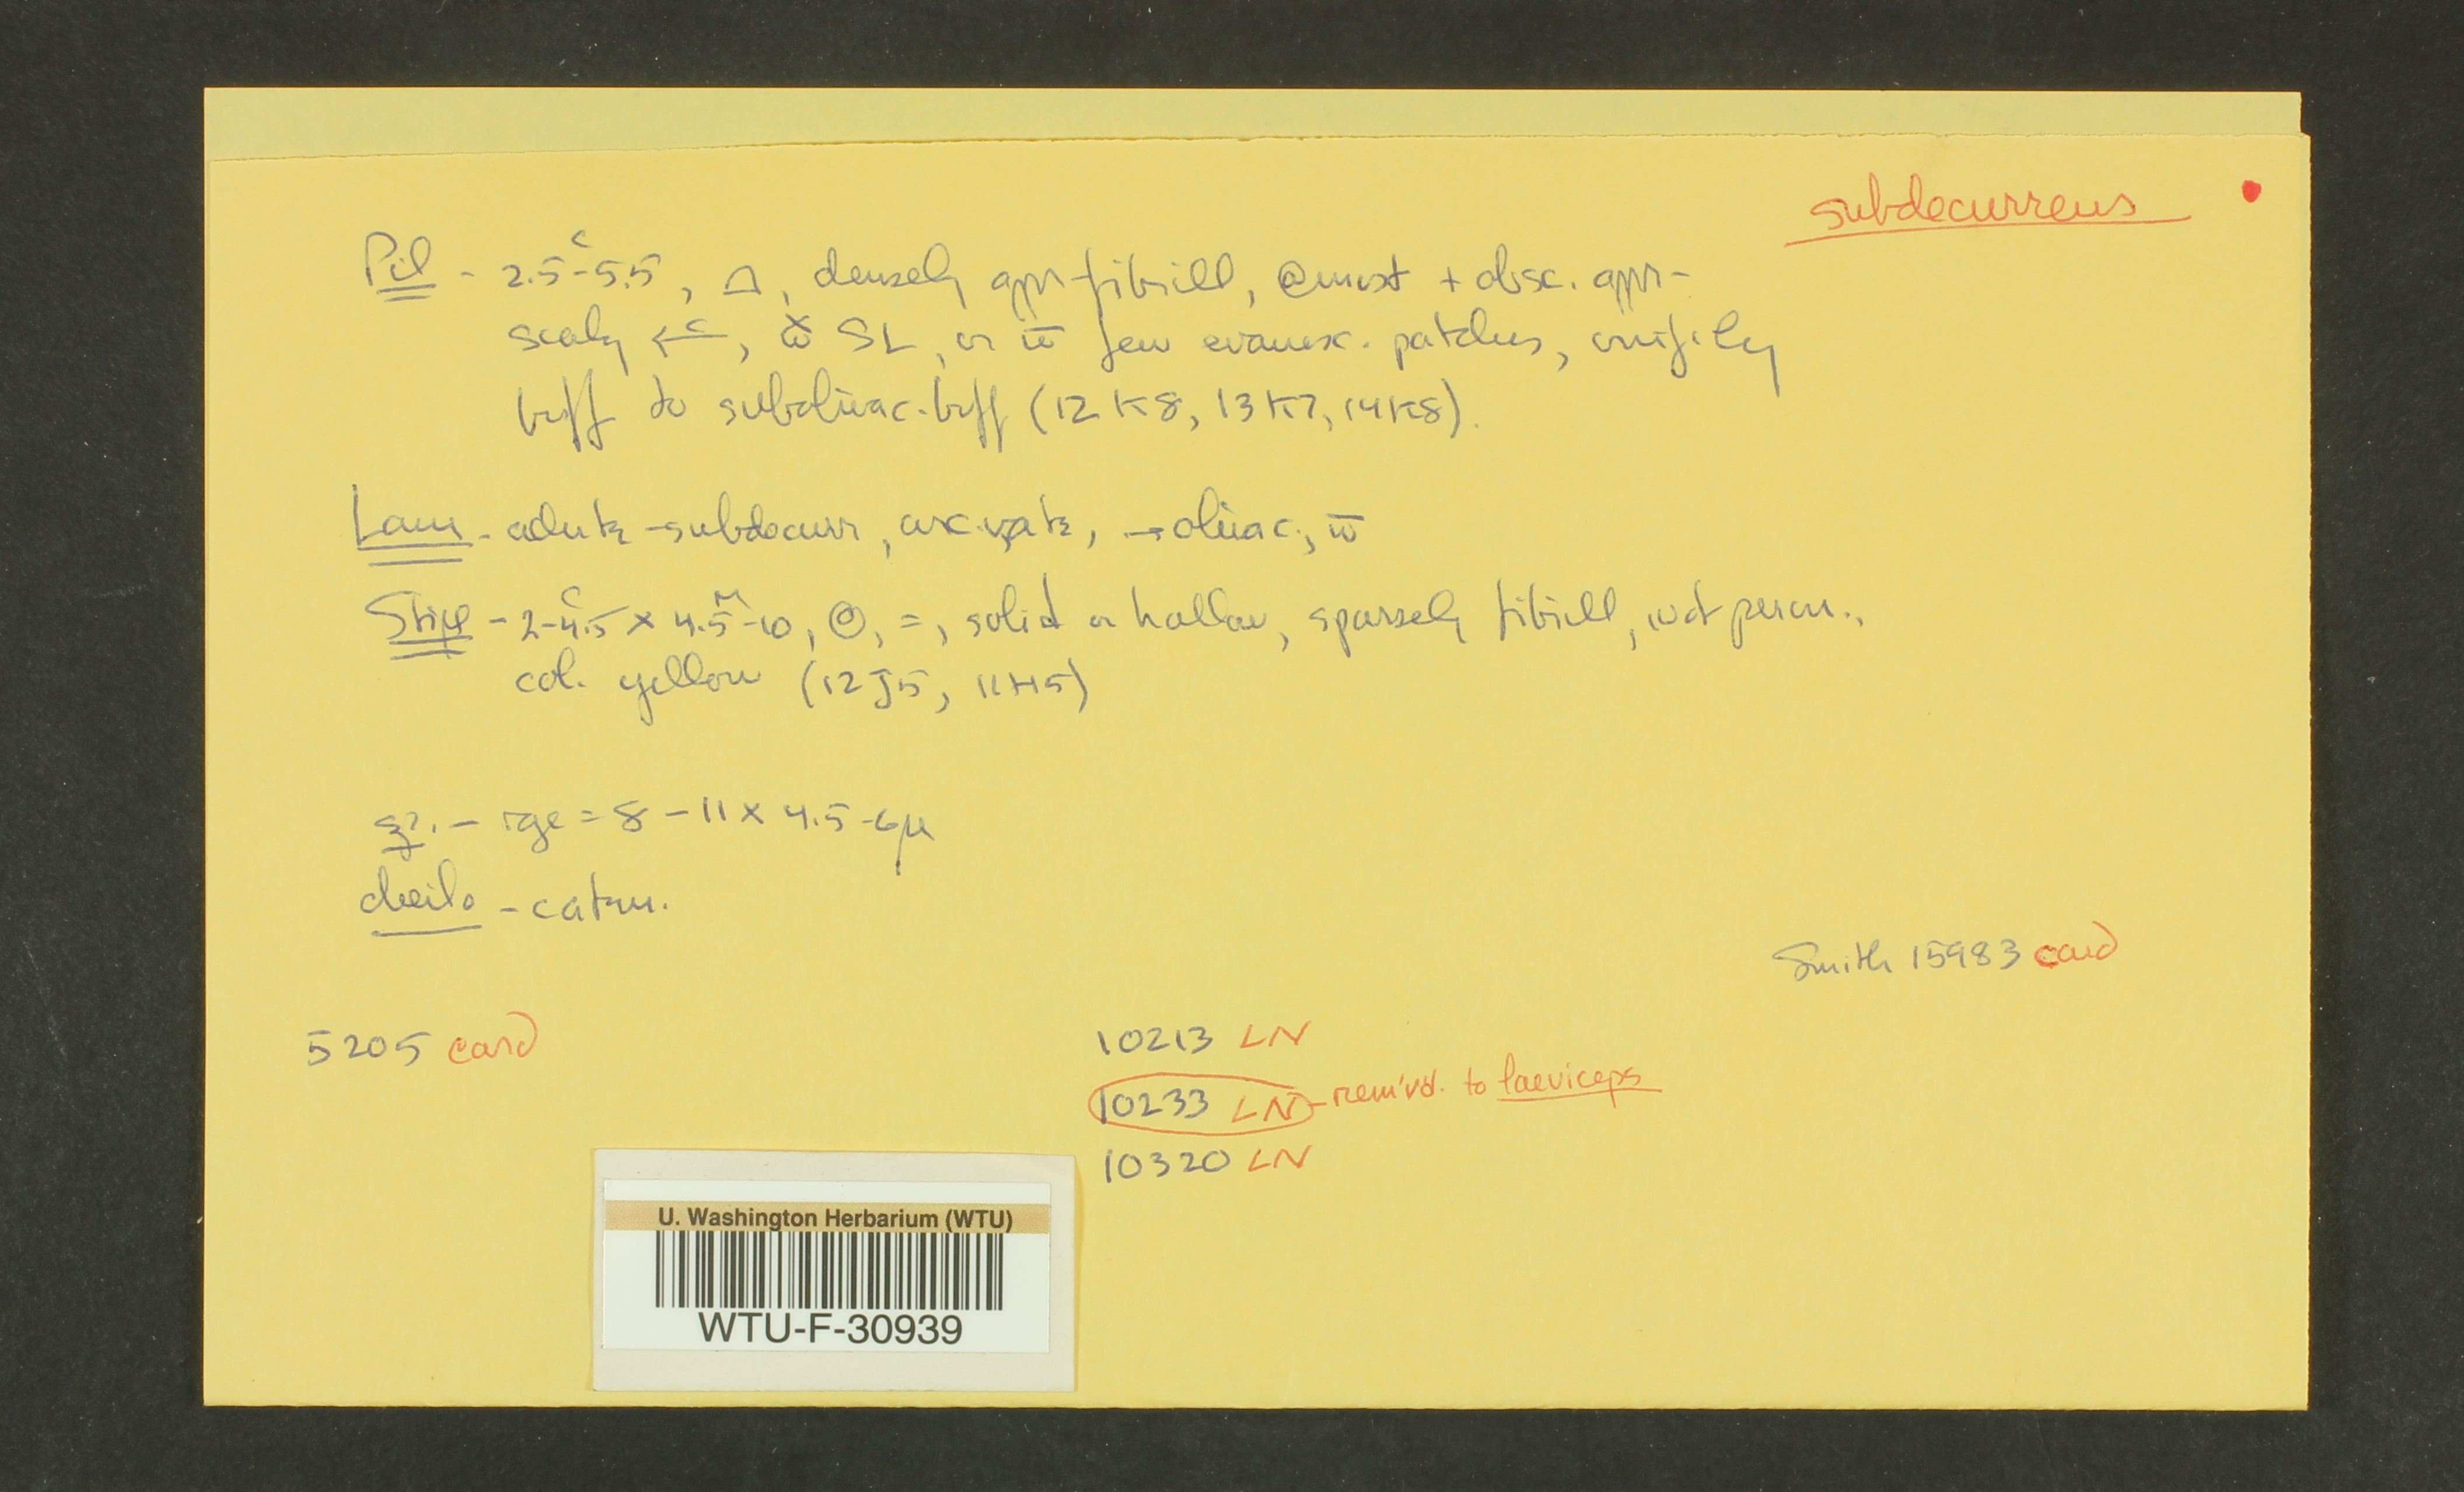 subdecurrens
Pil - 2.5-5.5 c, densely appr-fibrill, @ most + obsc. appr-
scaly, SL, or w̄ few evanesc. patches, unif'ly
buff to subolivac. buff (12K8, 13K7, 14K8).
Lam - adnate-subdecurr, arcuate, → olivac., w̄
Stipe - 2-4.5 c × 4.5-10 m, =, solid or hollow, sparsely fibrill, not peron.,
col. yellow (12J5, 11H5)
sp. - rge = 8-11 × 4.5-6µ
cheilo - caten.
Smith 15983 card
5205 card
10213 LN
10233 LN - remv'd. to laeviceps
10320 LN
U. Washington Herbarium (WTU)
WTU-F-30939